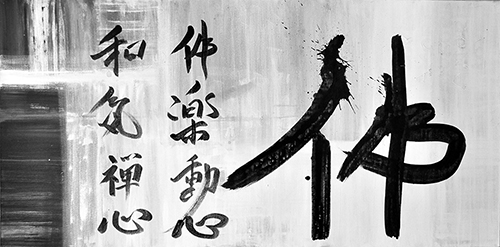 佛
佛楽動心
和気禅心